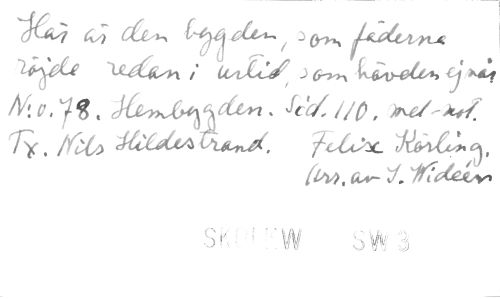 Här är den bygden, som fäderna
röjde redan i urtid, som hävden ej når
N:o.78. Hembygden. Sid. 110. mel-not.
Tx. Nils Hildestrand. Felix Körling.
Arr. av I. Widéen
SW3